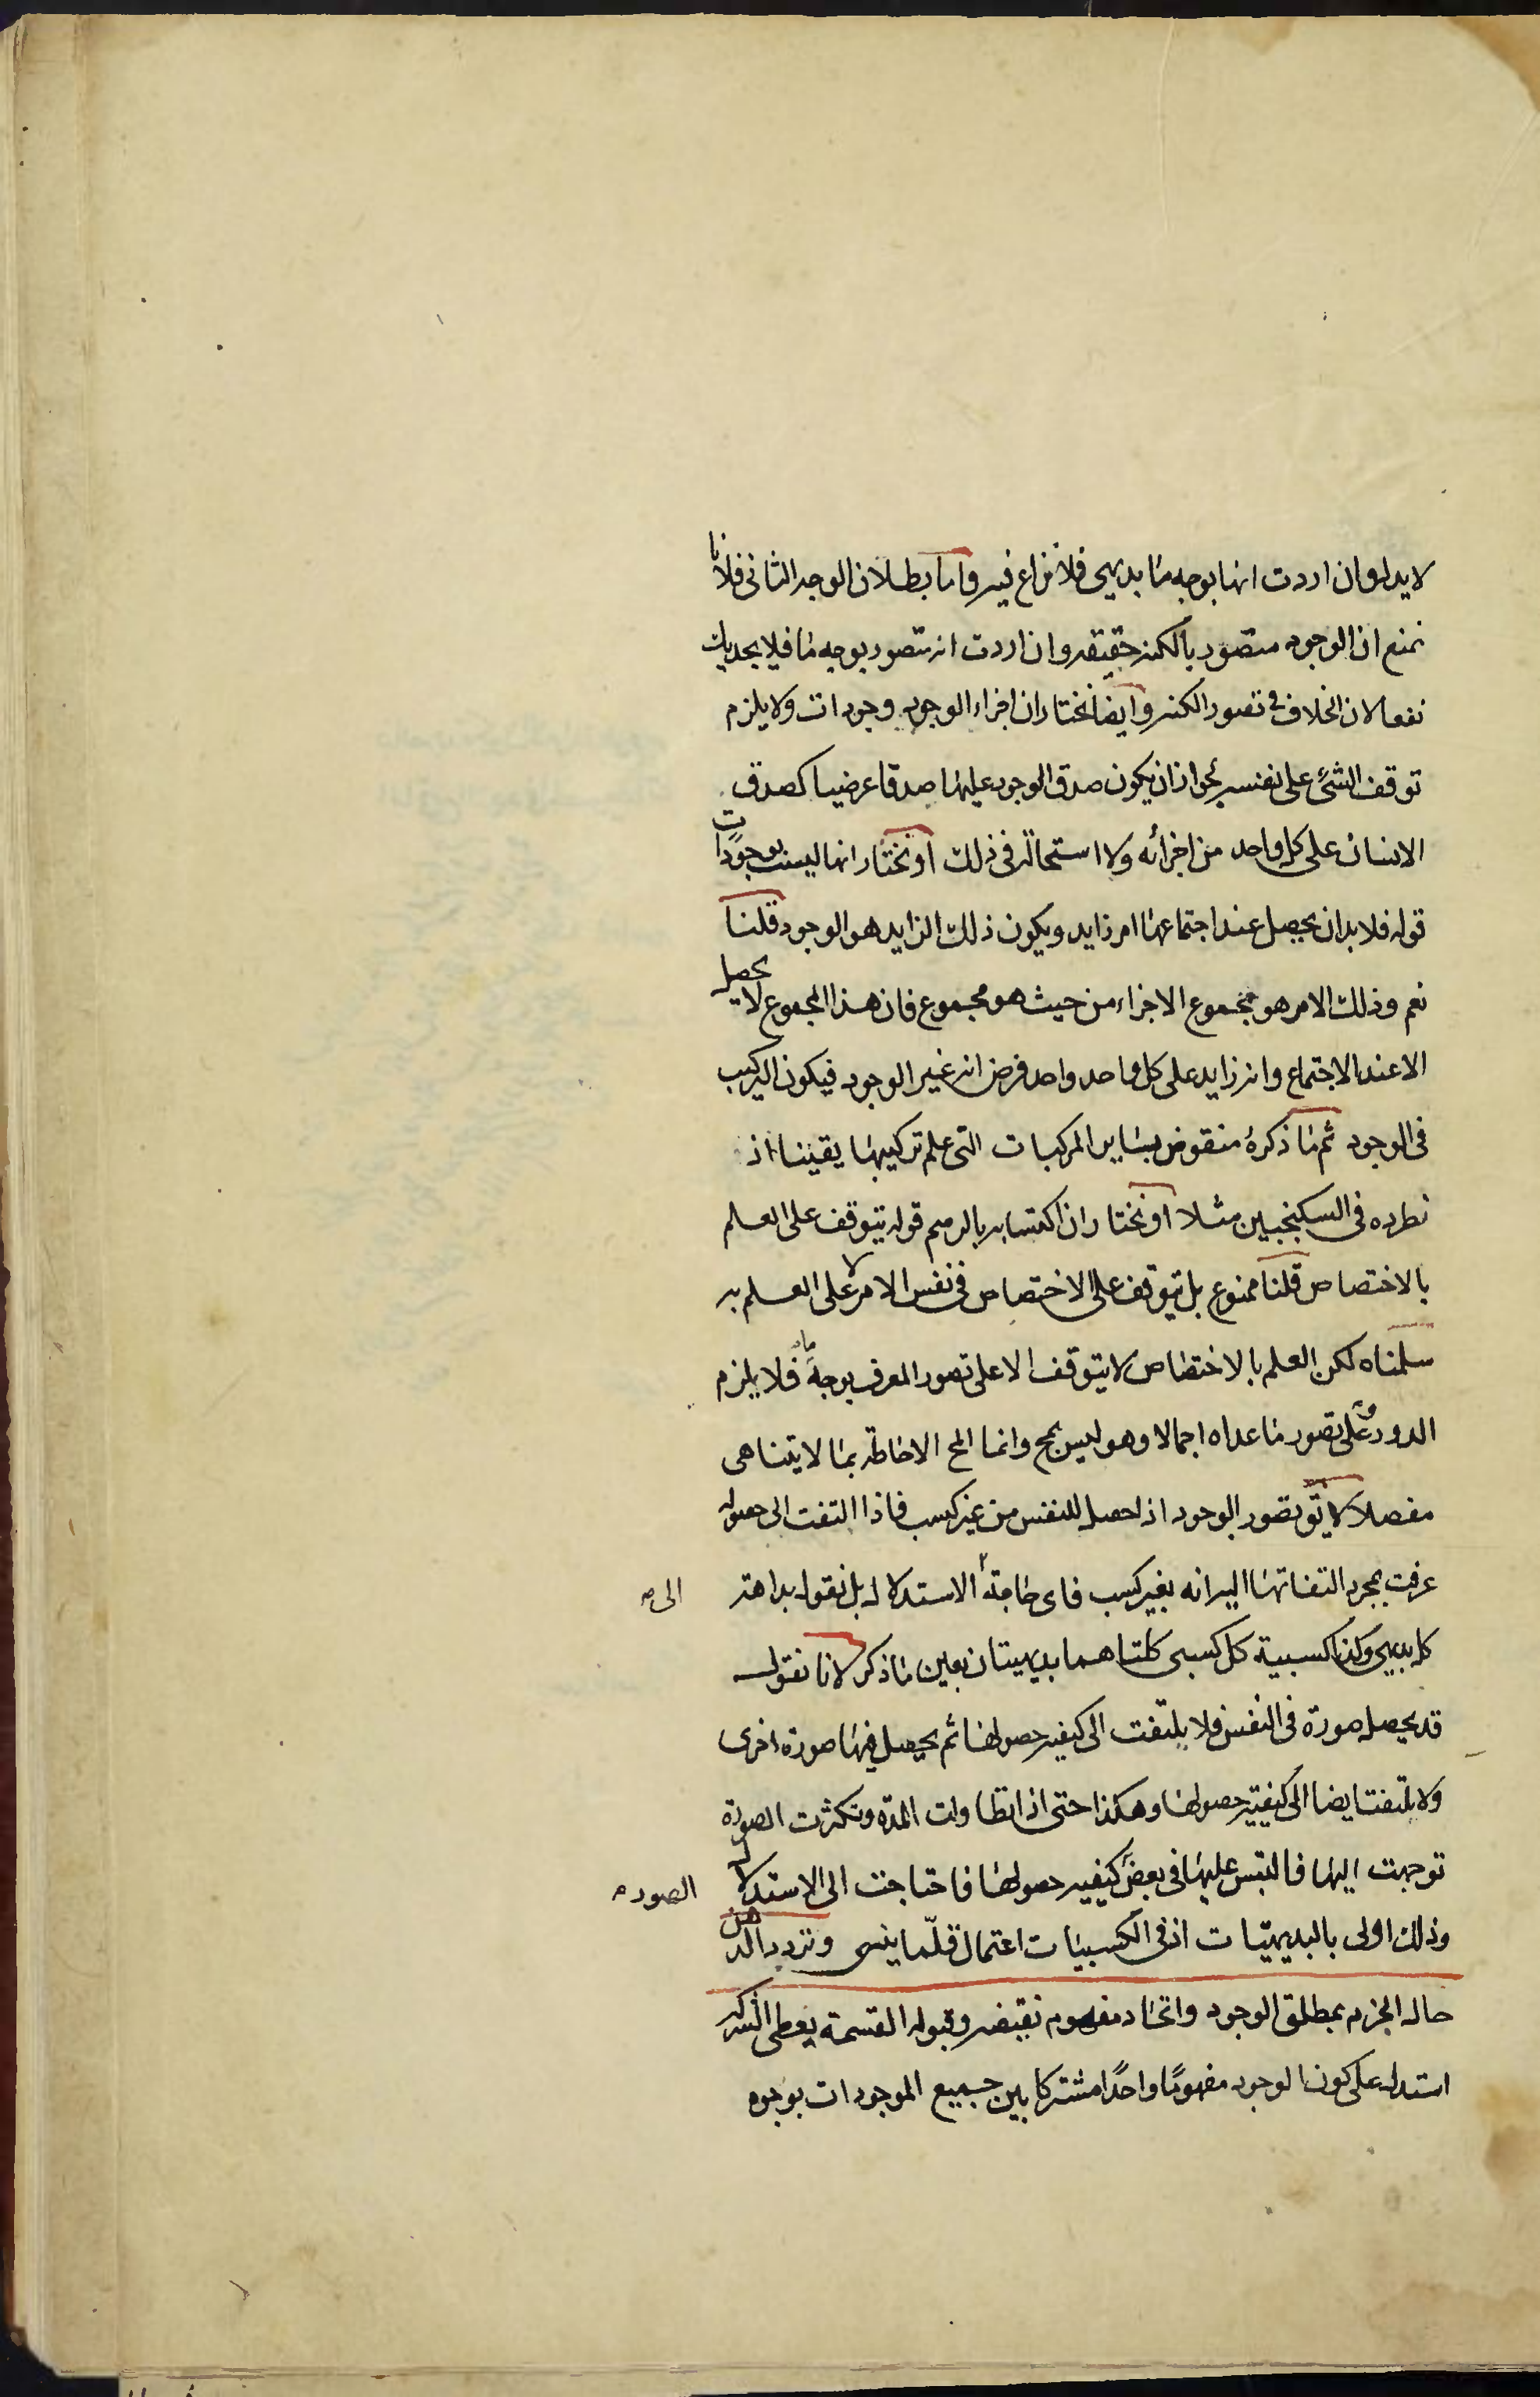 لا يدل وان اردت انها بوجه ما بديهي فلا نزاع فيه واما بطلان الوجه الثانى فلانا
نمنع ان الوجود متصور بالكنه حقيقه وان اردت انه متصور بوجه ما فلا يجديك
نفعا لان الخلاف فى تصور الكنه وايضا نختار ان اجزاء الوجود وجودات ولا يلزم
توقف الشئ على نفسه لجواز ان يكون صدق الوجود عليها صدقا عرضيا كصدق
الانسان على كل واحد من اجزائه ولا استحالة فى ذلك او نختار انها ليست بوجودات
قوله فلا بد ان يحصل عند اجتماعها امر زايد ويكون ذلك الزايد هو الوجود قلنا
نعم وذلك الامر هو مجموع الاجزاء من حيث هو مجموع فان هذا المجموع لا يحصل
الا عند الاجتماع وانه زايد على كل واحد واحد فرض انه غير الوجود فيكون التركيب
فى الوجود ثم ما ذكره منقوض بساير المركبات التى علم تركيبها يقينا اذ
نطرده فى السكنجبين مثلا او نختار ان اكتسابه بالرسم قوله يتوقف على العلم
بالاختصاص قلنا ممنوع بل يتوقف على الاختصاص فى نفس الامر لا على العلم به
سلمناه لكن العلم بالاختصاص لا يتوقف الا على تصور المعرف بوجه ما فلا يلزم
الدور وعلى تصور ما عداه اجمالا وهو ليس بمح وانما المح الاحاطة بما لا يتناهى
مفصلا لا يق تصور الوجود اذا حصل للنفس من غير كسب فاذا التفت الى حصوله
عرفت بمجرد التفاتها اليه انه بغير كسب فاى حاجة الاستدلال بل نقول بداهة
الى صح
كل بديهى وكذا كسبية كل كسبى كلتاهما بديهيتان بعين ما ذكر لانا نقول
قد يحصل صورة فى النفس ولا يلتفت الى كيفيه حصولها ثم يحصل فيها صورة اخرى
ولا يلتفت ايضا الى كيفيته حصولها وهكذا حتى اذا تطاولت المدة وتكثرت الصورة
توجهت اليها فالتبس عليها فى بعض كيفيه حصولها فاحتاجت الى الاستدلال
الصور صح
وذلك اولى بالبديهيات اذ فى الكسبيات اعتمال قلّما ينسى وتردد الذهن
حال الجزم بمطلق الوجود واتحاد مفهوم نقيضه وقبوله القسمة يعطى الشركه
استدل على كون الوجود مفهومًا واحدًا مشتركا بين جميع الموجودات بوجوه